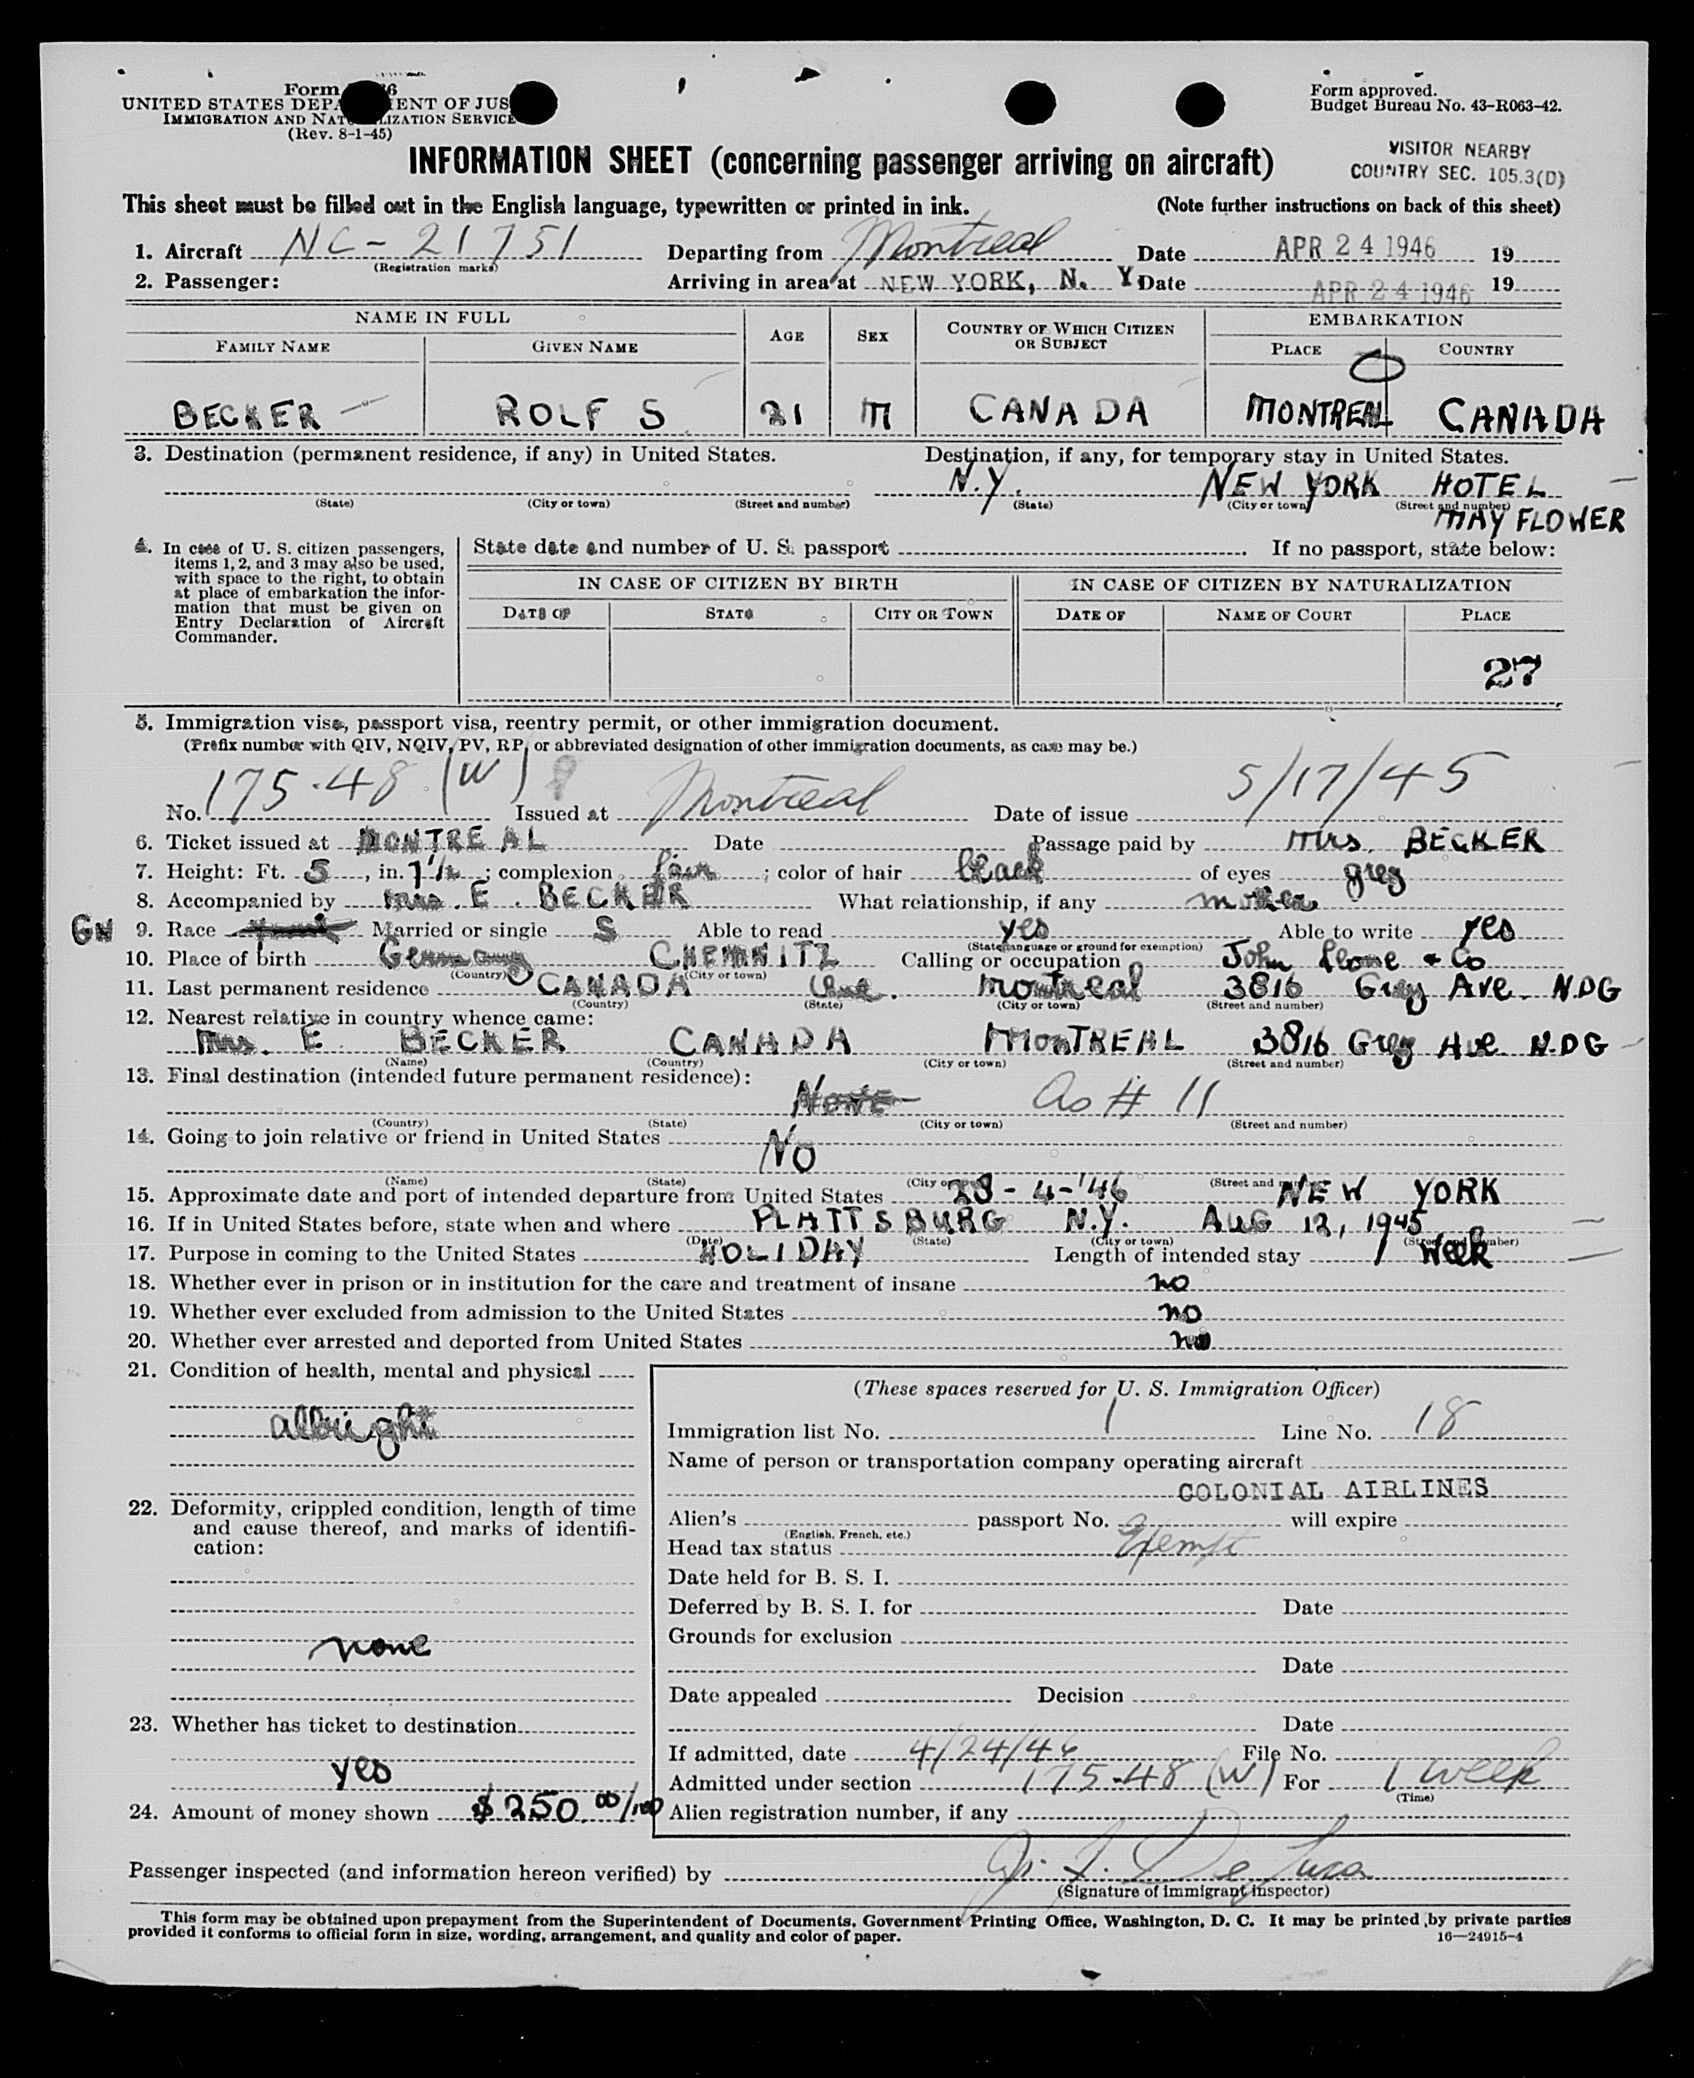 Form
UNITED STATES DEPA ENT OF JUS
IMMIGRATION AND NAT LIZATION SERVICE
(Rev. 8-1-45)
Form approved.
Budget Bureau No. 43-R063-42.
INFORMATION SHEET (concerning passenger arriving on aircraft)
VISITOR NEARBY
COUNTRY SEC. 105.3(D)
This sheet must be filled out in the English language, typewritten or printed in ink. (Note further instructions on back of this sheet)
1. Aircraft NC-21751 Departing from Montreal Date APR 24 1946 19
(Registration marks)
2. Passenger: Arriving in area at NEW YORK, N. Y. Date APR 24 1946 19
NAME IN FULL AGE SEX COUNTRY OF WHICH CITIZEN OR SUBJECT EMBARKATION
FAMILY NAME GIVEN NAME PLACE COUNTRY
BECKER ROLF S 21 M CANADA MONTREAL CANADA
3. Destination (permanent residence, if any) in United States. Destination, if any, for temporary stay in United States.
N.Y. NEW YORK HOTEL
(State) (City or town) (Street and number) (State) (City or town) (Street and number)
MAYFLOWER
4. In case of U. S. citizen passengers, items 1, 2, and 3 may also be used, with space to the right, to obtain at place of embarkation the information that must be given on Entry Declaration of Aircraft Commander.
State date and number of U. S. passport If no passport, state below:
IN CASE OF CITIZEN BY BIRTH IN CASE OF CITIZEN BY NATURALIZATION
DATE OF STATE CITY OR TOWN DATE OF NAME OF COURT PLACE
27
5. Immigration visa, passport visa, reentry permit, or other immigration document.
(Prefix number with QIV, NQIV, PV, RP, or abbreviated designation of other immigration documents, as case may be.)
No. 175.48 (W) Issued at Montreal Date of issue 5/17/45
6. Ticket issued at MONTREAL Date Passage paid by Mrs. BECKER
7. Height: Ft. 5, in. 7 1/2; complexion fair; color of hair black of eyes grey
8. Accompanied by Mrs. E. BECKER What relationship, if any mother
GN 9. Race Married or single S Able to read yes Able to write yes
(State language or ground for exemption)
10. Place of birth Germany CHEMNITZ Calling or occupation John & Co
(Country) (City or town)
11. Last permanent residence CANADA Que. Montreal 3816 Grey Ave. NDG
(Country) (State) (City or town) (Street and number)
12. Nearest relative in country whence came:
Mrs. E BECKER CANADA MONTREAL 3816 Grey Ave. N.D G
(Name) (Country) (City or town) (Street and number)
13. Final destination (intended future permanent residence):
None As # 11
(Country) (State) (City or town) (Street and number)
14. Going to join relative or friend in United States
No
(Name) (State) (City or town) (Street and number)
15. Approximate date and port of intended departure from United States 28-4-'46 NEW YORK
16. If in United States before, state when and where PLATTSBURG N.Y. AUG 12, 1945
(Date) (State) (City or town) (Street and number)
17. Purpose in coming to the United States HOLIDAY Length of intended stay 1 Week
18. Whether ever in prison or in institution for the care and treatment of insane no
19. Whether ever excluded from admission to the United States no
20. Whether ever arrested and deported from United States no
21. Condition of health, mental and physical
allright
22. Deformity, crippled condition, length of time and cause thereof, and marks of identification:
none
23. Whether has ticket to destination
yes
24. Amount of money shown $250.00/100
(These spaces reserved for U. S. Immigration Officer)
Immigration list No. 1 Line No. 18
Name of person or transportation company operating aircraft
COLONIAL AIRLINES
Alien's passport No. will expire
(English, French, etc.)
Head tax status Exempt
Date held for B. S. I.
Deferred by B. S. I. for Date
Grounds for exclusion
Date
Date appealed Decision
Date
If admitted, date 4/24/46 File No.
Admitted under section 175.48 (W) For 1 week
(Time)
Alien registration number, if any
Passenger inspected (and information hereon verified) by
(Signature of immigrant inspector)
This form may be obtained upon prepayment from the Superintendent of Documents, Government Printing Office, Washington, D. C. It may be printed by private parties
provided it conforms to official form in size, wording, arrangement, and quality and color of paper.
16—24915-4